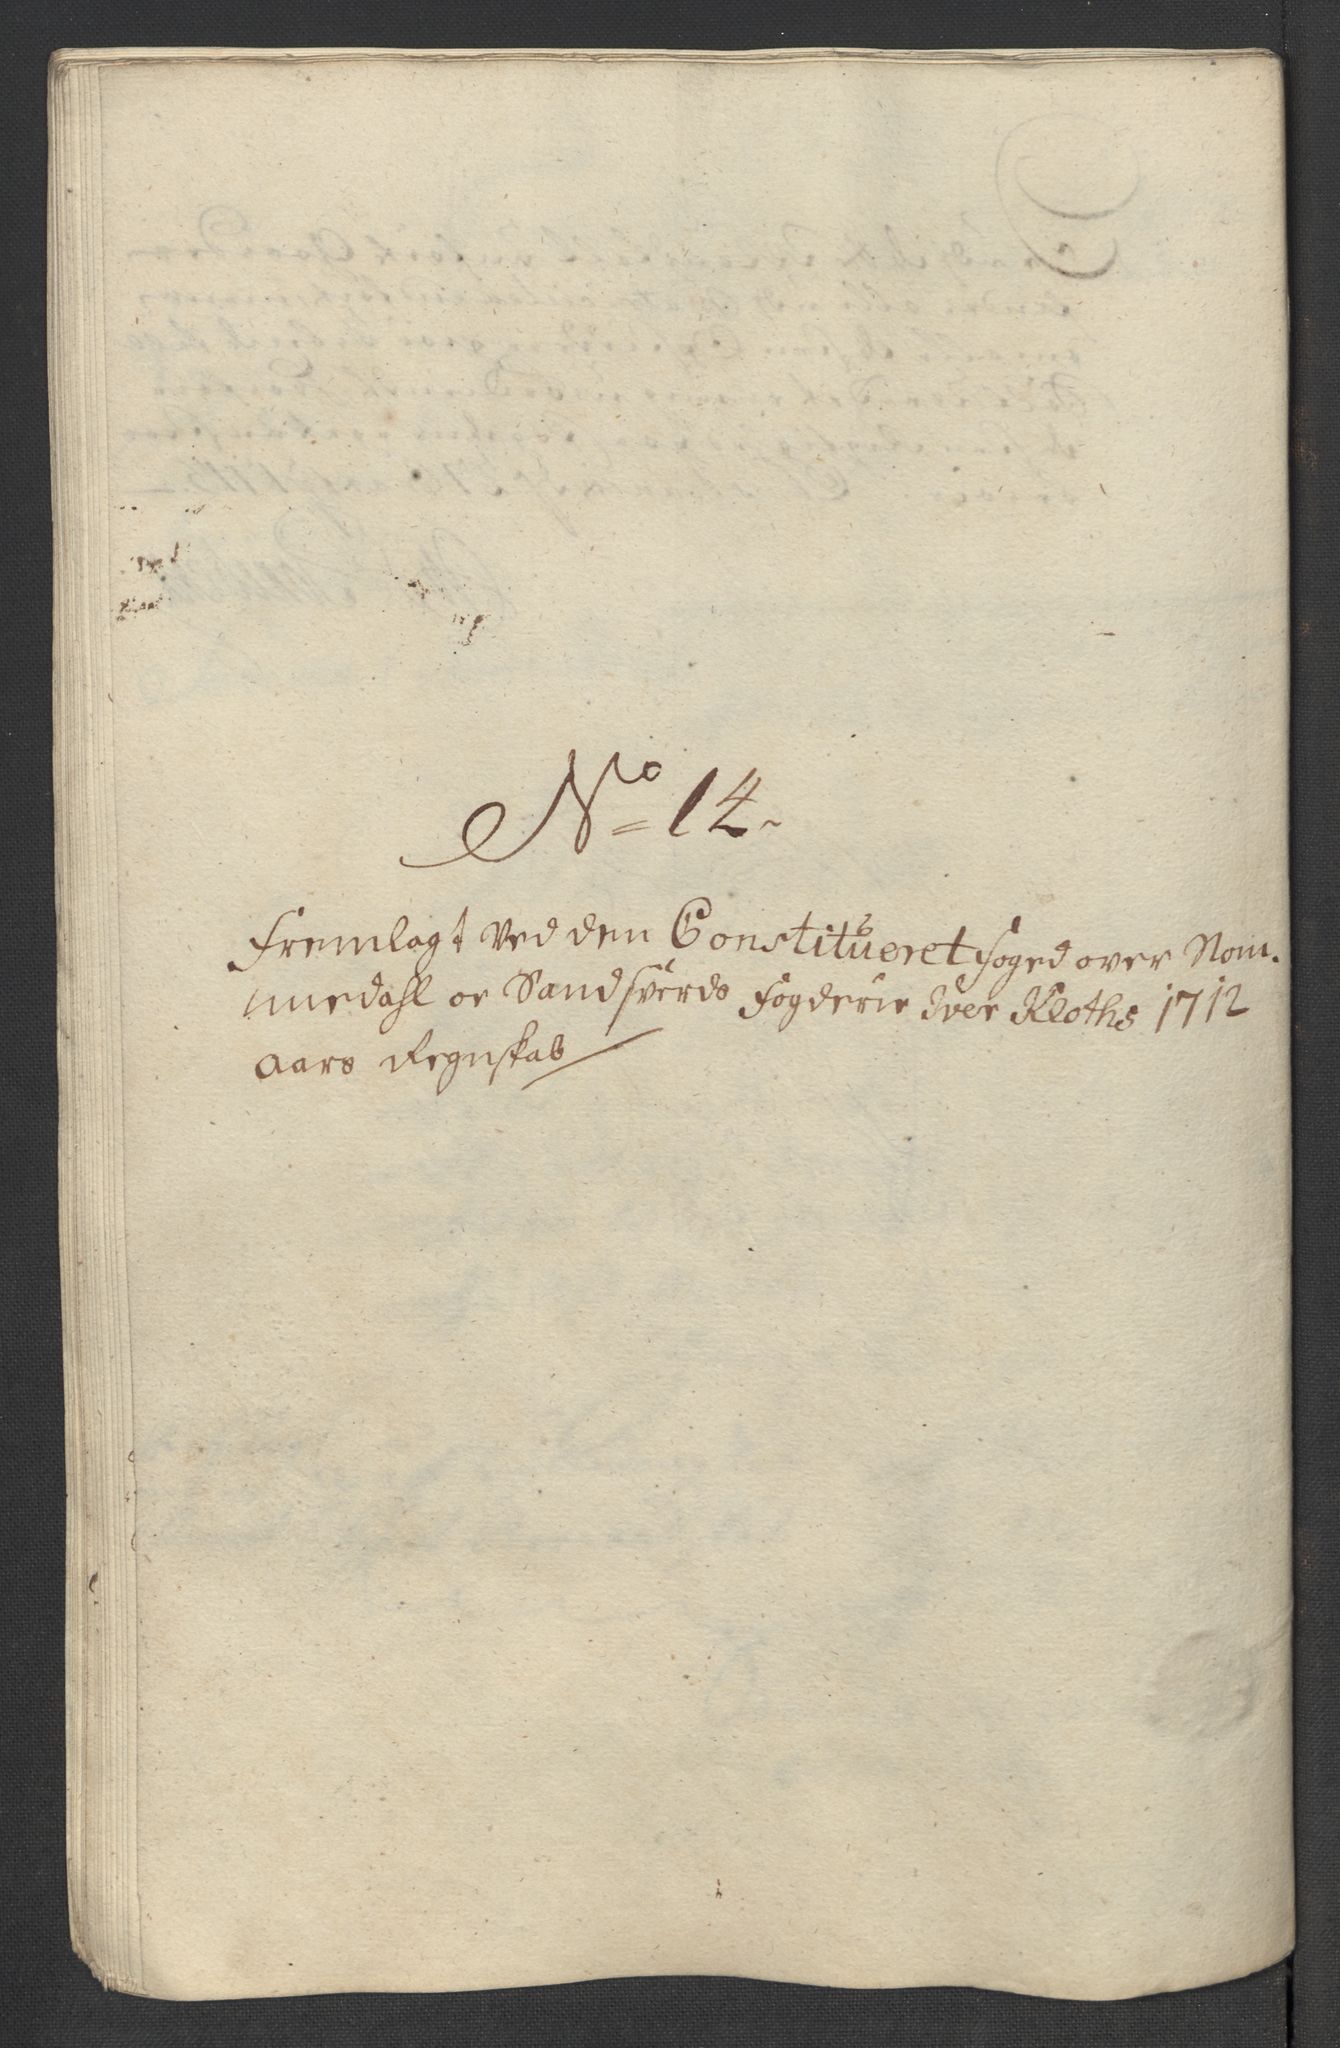 No 14.
Fremlagt ved dem Constitueret foged over Nom-
medahl oc Sandsverds fogderie Iver Kloths 1712
aars Regnskab